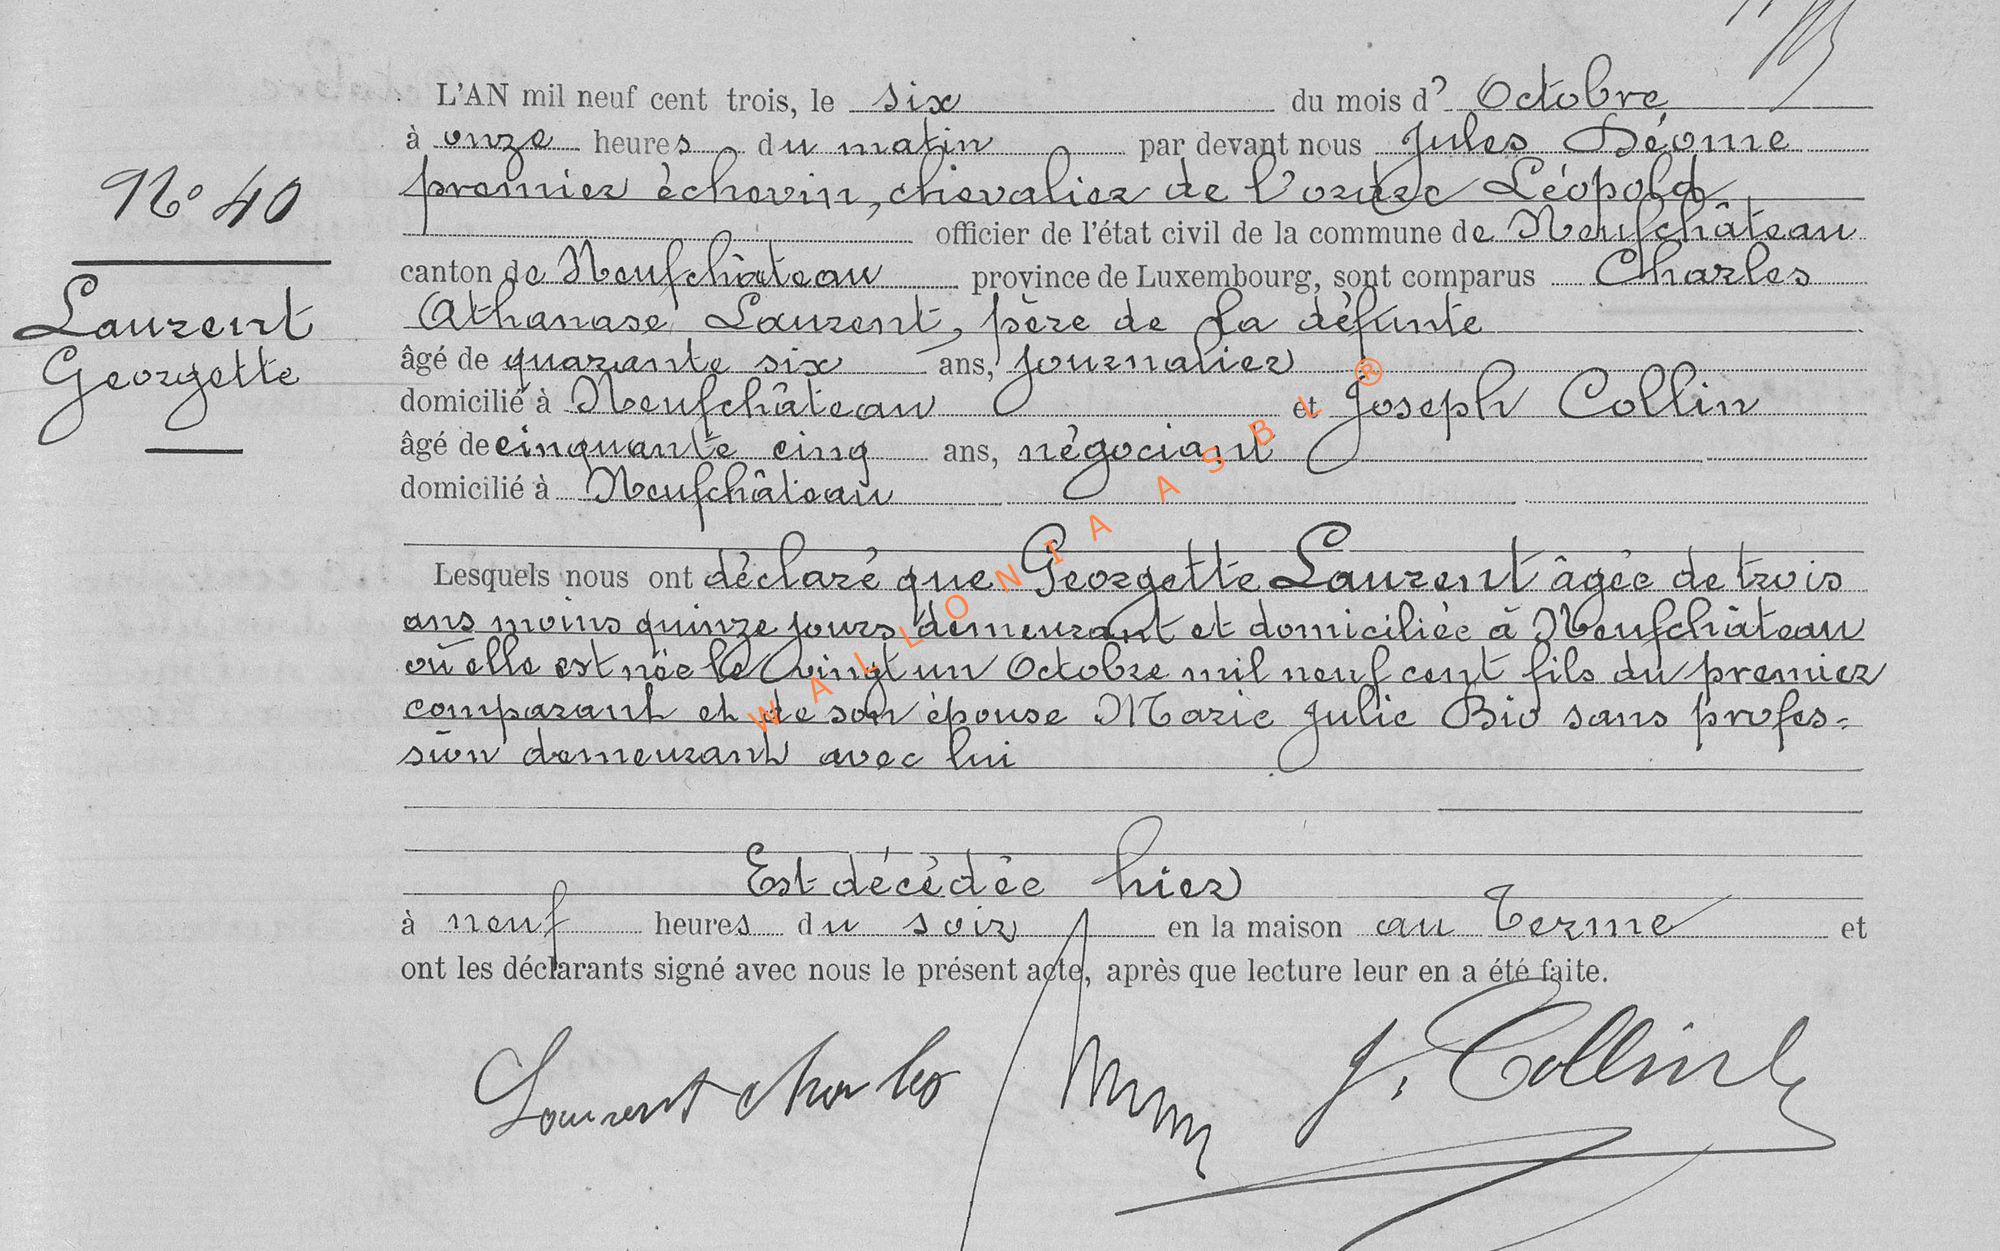 L'AN mil neuf cent trois, le six du mois d' Octobre
à onze heures du matin par devant nous Jules Déome
premier échevin, chevalier de l'ordre Léopold
officier de l'état civil de la commune de Neufchâteau
canton de Neufchâteau province de Luxembourg, sont comparus Charles
Athanase Laurent, père de la défunte
âgé de quarante six ans, journalier
domicilié à Neufchâteau et Joseph Collin
âgé de cinquante cinq ans, négociant
domicilié à Neufchâteau
N° 40
Laurent
Georgette
Lesquels nous ont déclaré que Georgette Laurent âgée de trois
ans moins quinze jours demeurant et domiciliée à Neufchâteau
où elle est née le vingt un Octobre mil neuf cent fils du premier
comparant et de son épouse Marie Julie Bio sans profes=
sion demeurant avec lui
Est décédée hier
à neuf heures du soir en la maison au Terme et
ont les déclarants signé avec nous le présent acte, après que lecture leur en a été faite.
Laurent charles J. Collin
WALLONIA ASBL ®